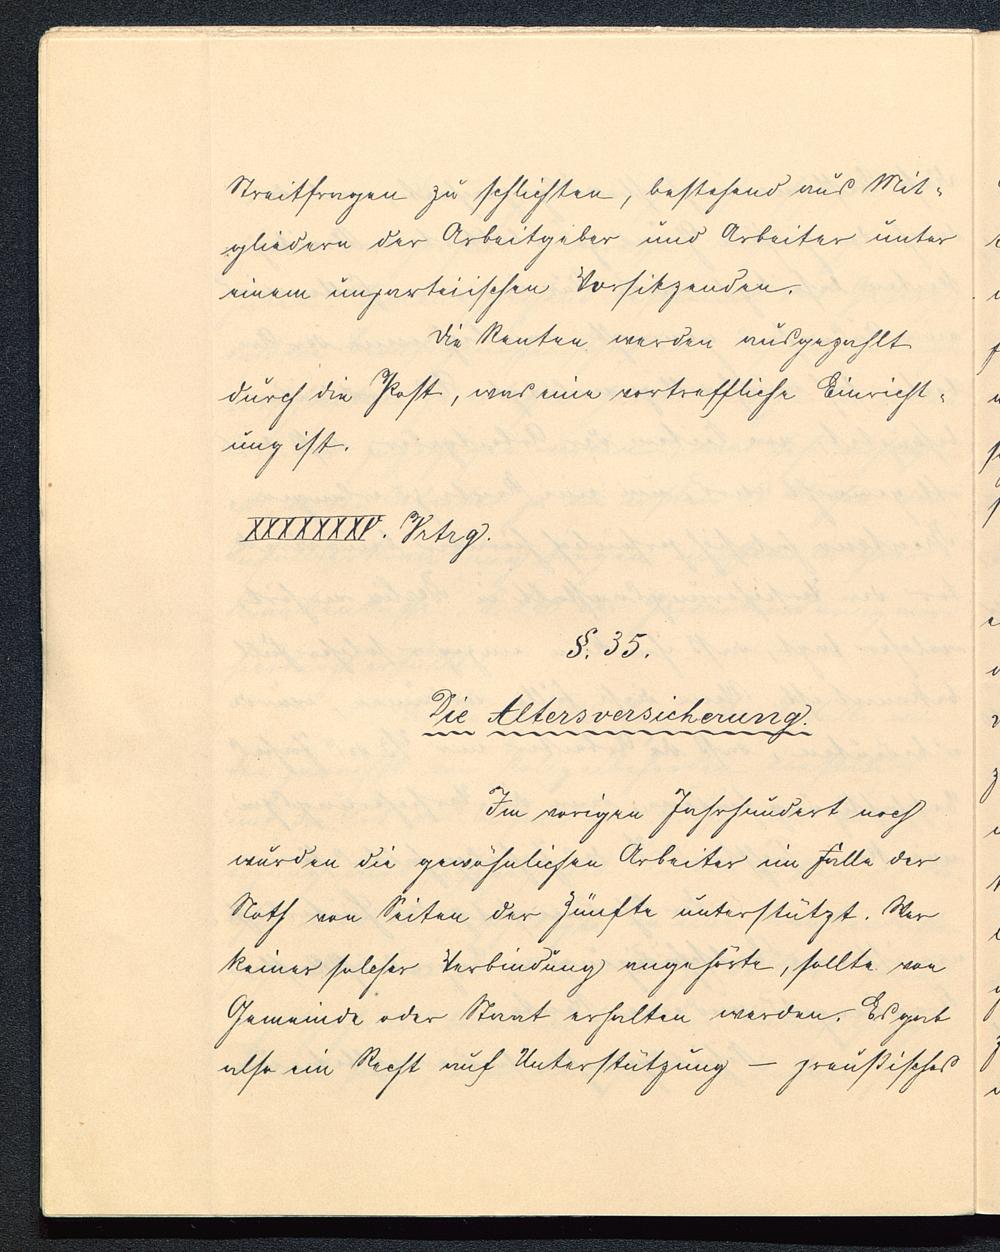 Streitfragen zu schlichten, bestehend aus Mit-
gliedern der Arbeitgeber und Arbeiter unter
einem unparteiischen Vorsitzenden.
Die Renten werden ausgezahlt
durch die Post, was eine vortreffliche Einricht-
ung ist.
XXXXXXXV. Vrtrg.
§. 35.
Die Altersversicherung.
Im vorigen Jahrhundert noch
wurden die gewöhnlichen Arbeiter im Falle der
Noth von Seiten der Zünfte unterstützt. Wer
keiner solcher Verbindung angehörte, sollte von
Gemeinde oder Staat erhalten werden. Es gab
also ein Recht auf Unterstützung — preußisches